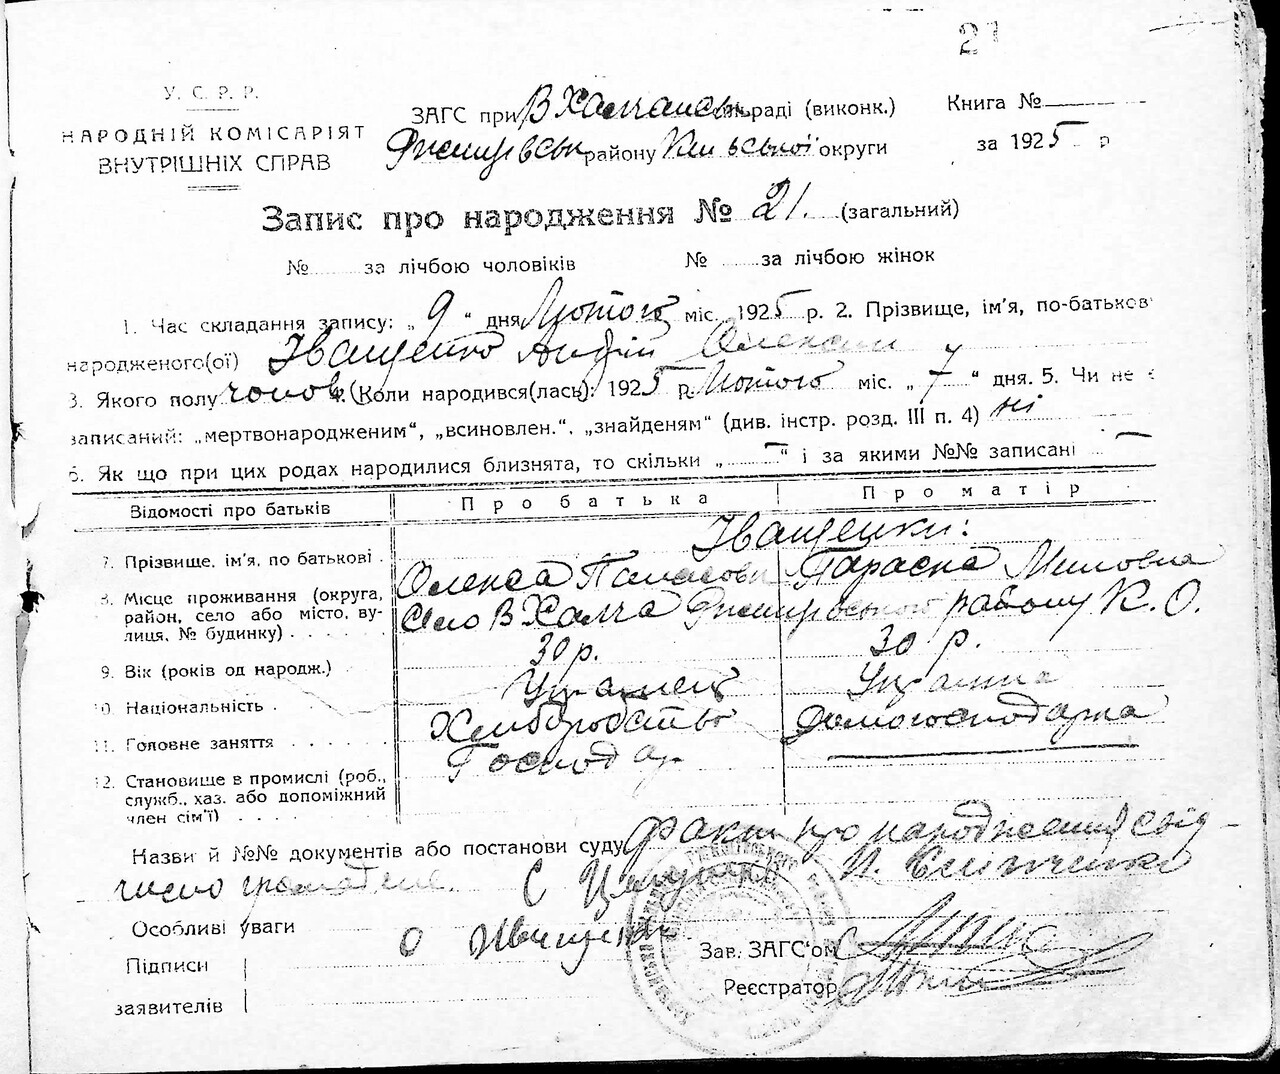 27
У. С. Р. Р.
НАРОДНІЙ КОМІСАРІЯТ
ВНУТРІШНІХ СПРАВ
ЗАГС при В Халчанськ раді (виконк.)
району округи
Книга №
за 1925 р
Запис про народження № 21. (загальний)
№ за лічбою чоловіків № за лічбою жінок
1. Час складання запису: „9“ дня Лютого міс. 1925 р. 2. Прізвище, ім'я, по-батьков
народженого(ої) Іващенко Андрій Олексии
3. Якого полу чолов. 4. (Коли народився(лась): 1925 р. Лютого міс. „7“ дня. 5. Чи не є
записаний: „мертвонародженим“, „всиновлен.“, „знайденям“ (див. інстр. розд. III п. 4) ні
6. Як що при цих родах народилися близнята, то скільки „ – “ і за якими №№ записані –
Відомості про батьків
Про батька
Про матір
Іващенки:
7. Прізвище, ім'я, по батькові .
Олекса Панасови
Параска Миловна
8. Місце проживання (округа, район, село або місто, вулиця, № будинку) . . . .
Село В Халча району К. О.
9. Вік (років од народж.)
30 р.
30 р.
10. Національність .
Українець
Українка
11. Головне заняття . . . . . .
Хліборобство
Домогосподарка
12. Становище в промислі (роб.,
служб., хаз. або допоміжний
член сім'ї) . . . .
Господар
Назви й №№ документів або постанови суду Факт про народження свід-
чило громадяне. С
Особливі уваги
О
Підписи
заявителів
Зав. ЗАГС'ом
Реєстратор